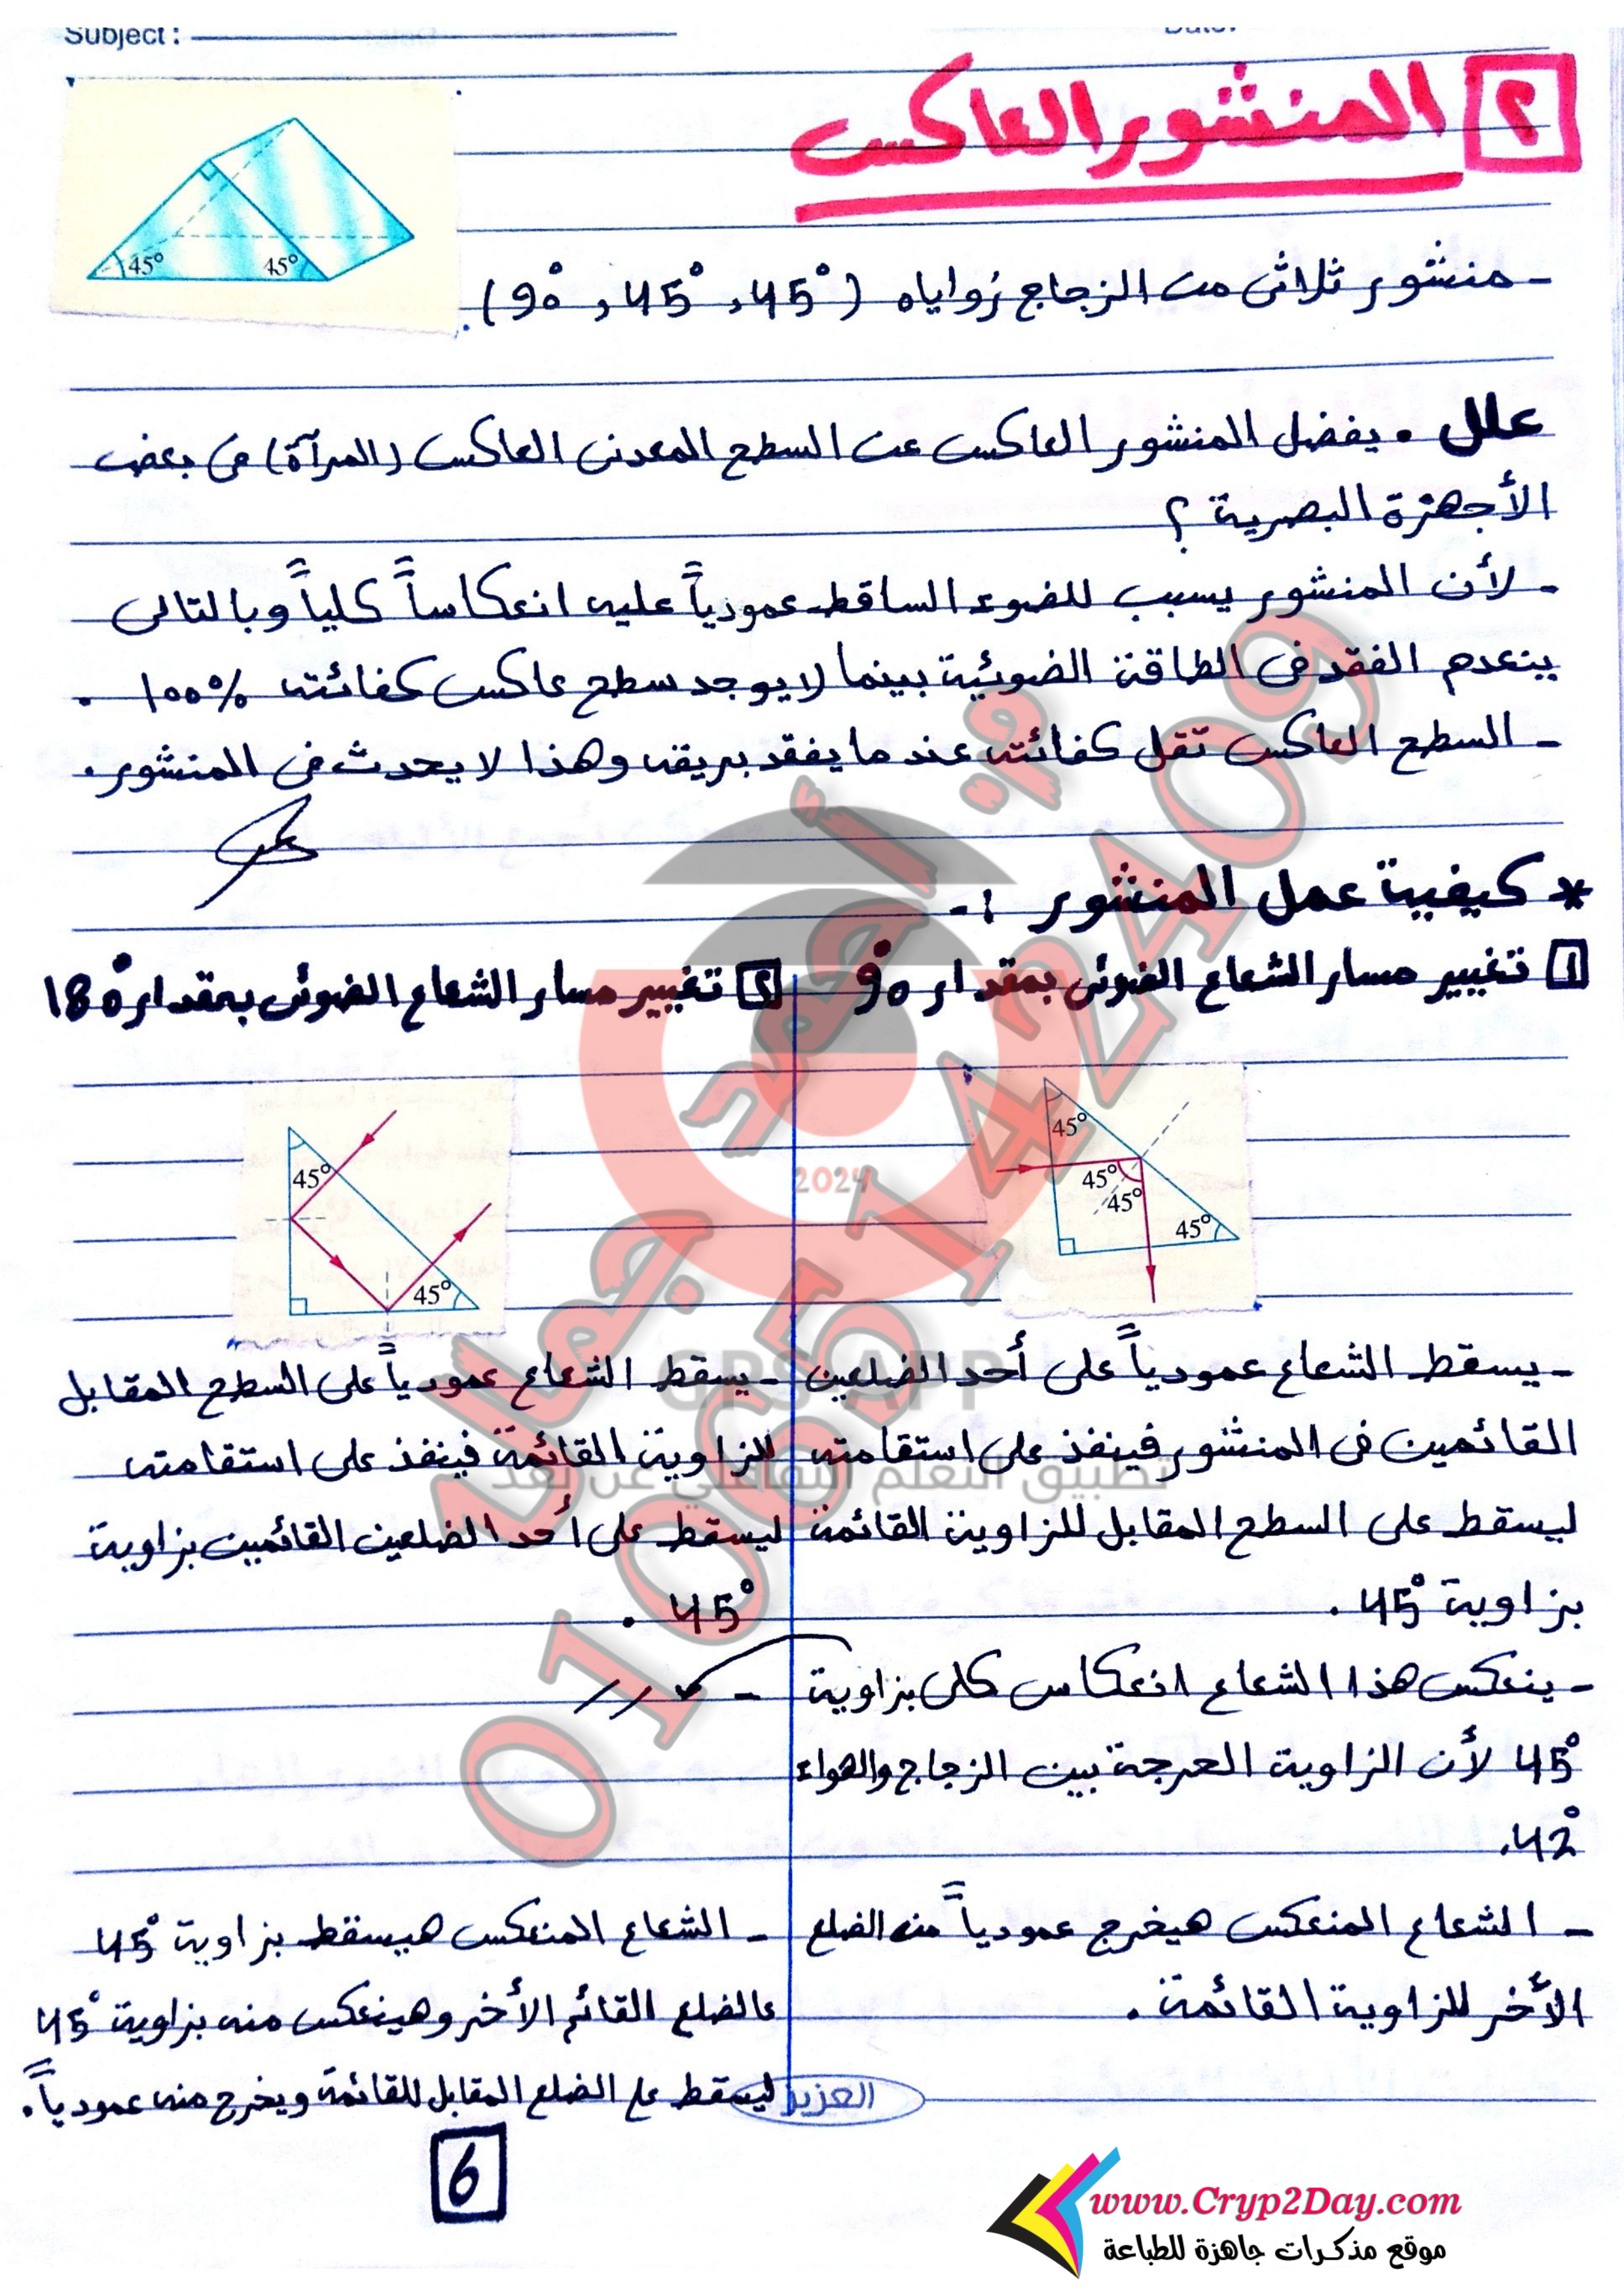 Subject :
Date:
٢ المنشور العاكس
45° 45°
- منشور ثلاثى من الزجاج زواياه (45° , 45° , 90°)
علل . يفضل المنشور العاكس عن السطح المعدنى العاكس (المرآة) فى بعض
الأجهزة البصرية ؟
- لأن المنشور يسبب للضوء الساقط عمودياً عليه انعكاساً كلياً وبالتالى
ينعدم الفقد فى الطاقة الضوئية بينما لا يوجد سطح عاكس كفائته ١٠٠% .
- السطح العاكس تقل كفائته عند ما يفقد بريقه وهذا لا يحدث فى المنشور .
* كيفية عمل المنشور :-
1 تغيير مسار الشعاع الضوئى بمقدار 90°
45°
45°
45°
45°
- يسقط الشعاع عمودياً على أحد الضلعين
القائمين فى المنشور فينفذ على استقامته
ليسقط على السطح المقابل للزاوية القائمة
بزاوية 45° .
- ينعكس هذا الشعاع انعكاس كلى بزاوية
45° لأن الزاوية الحرجة بين الزجاج والهواء
42° .
- الشعاع المنعكس هيخرج عمودياً منه الضلع
الأخر للزاوية القائمة .
٢ تغيير مسار الشعاع الضوئى بمقدار 180°
45°
45°
- يسقط الشعاع عمودياً على السطح المقابل
للزاوية القائمة فينفذ على استقامته
ليسقط على أحد الضلعين القائمين بزاوية
45° .
- //
- الشعاع المنعكس هيسقط بزاوية 45°
عالضلع القائم الأخر وهينعكس منه بزاوية 45°
ليسقط علي الضلع المقابل للقائمة ويخرج منه عمودياً .
العزيز
6
م / أحمد جمال
01065142409
2024
GPS APP
تطبيق التعلم التفاعلي عن بعد
www.Cryp2Day.com
موقع مذكرات جاهزة للطباعة